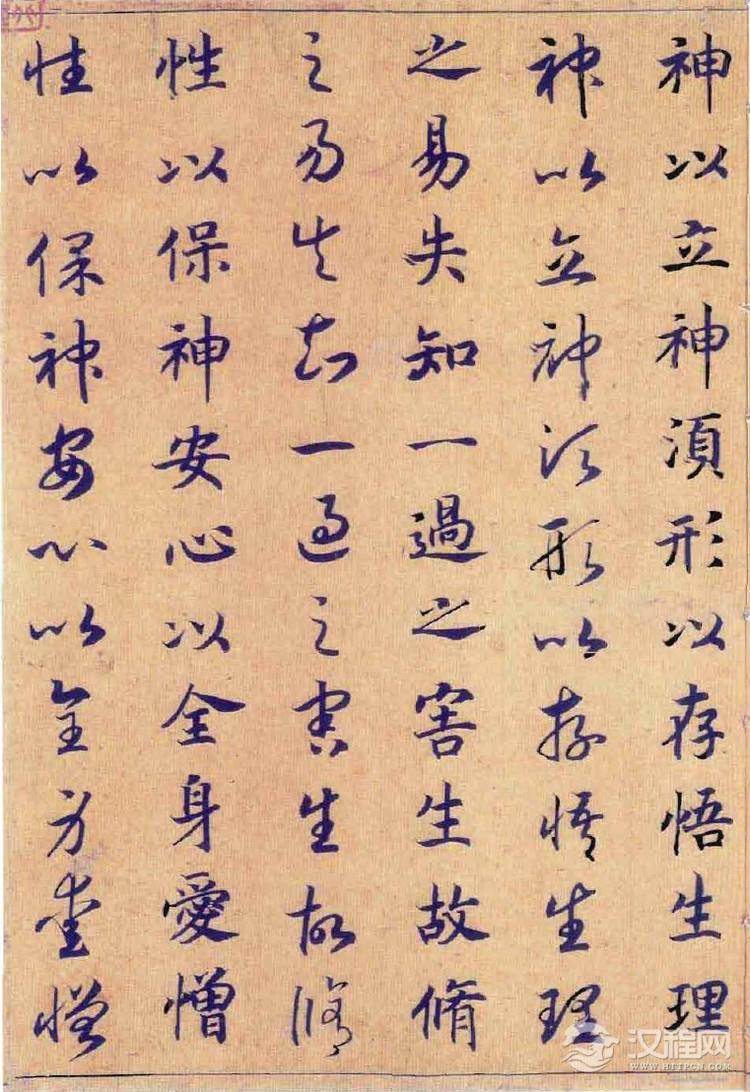 神以立神湏形以存悟生理
神以立神須形以存悟生理
之易失知一過之害生故脩
之易失知一過之害生故脩
性以保神安心以全身愛憎
性以保神安心以全身愛憎
汉程网
WWW.HTTPCN.COM